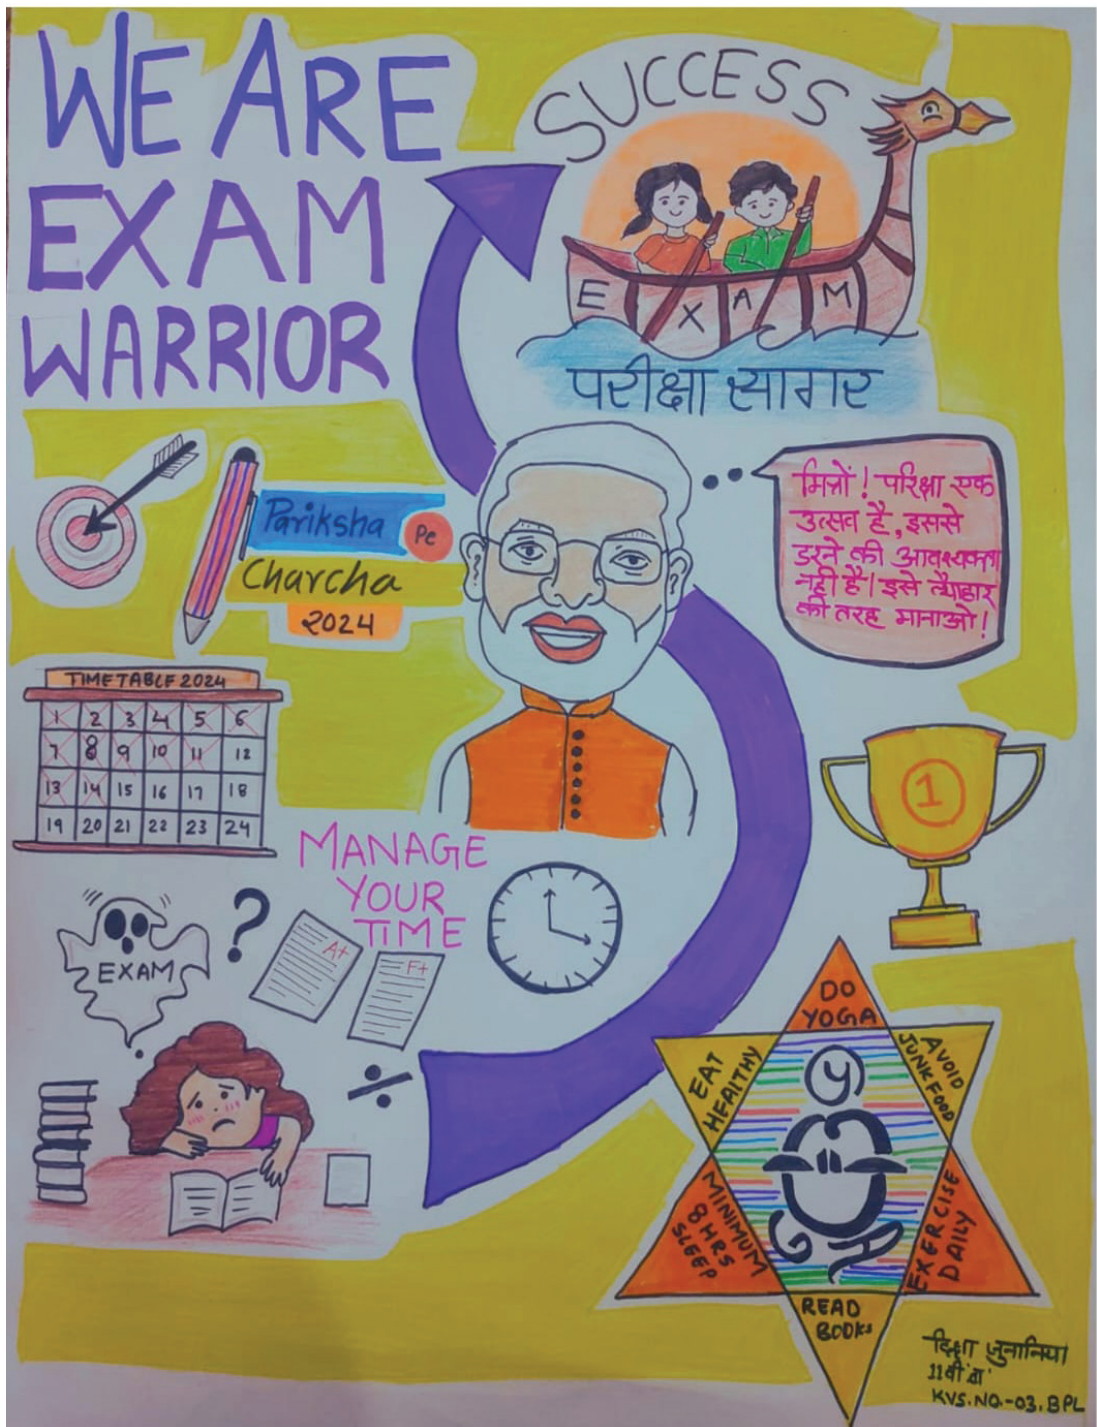 WE ARE
EXAM
WARRIOR
SUCCESS
E X A M
परीक्षा सागर
Pariksha Pe
Charcha
2024
मित्रों! परिक्षा एक
उत्सव है, इससे
डरने की आवश्यकता
नही है। इसे त्यौहार
की तरह मानाओ!
TIMETABLE 2024
1 2 3 4 5 6
7 8 9 10 11 12
13 14 15 16 17 18
19 20 21 22 23 24
MANAGE
YOUR
TIME
1
EXAM
?
A+
F+
DO
YOGA
EAT
HEALTHY
AVOID
JUNK FOOD
MINIMUM
8 HRS
SLEEP
EXERCISE
DAILY
READ
BOOKS
दिक्षा जुनानिया
11वी
KVS.NO.-03.BPL